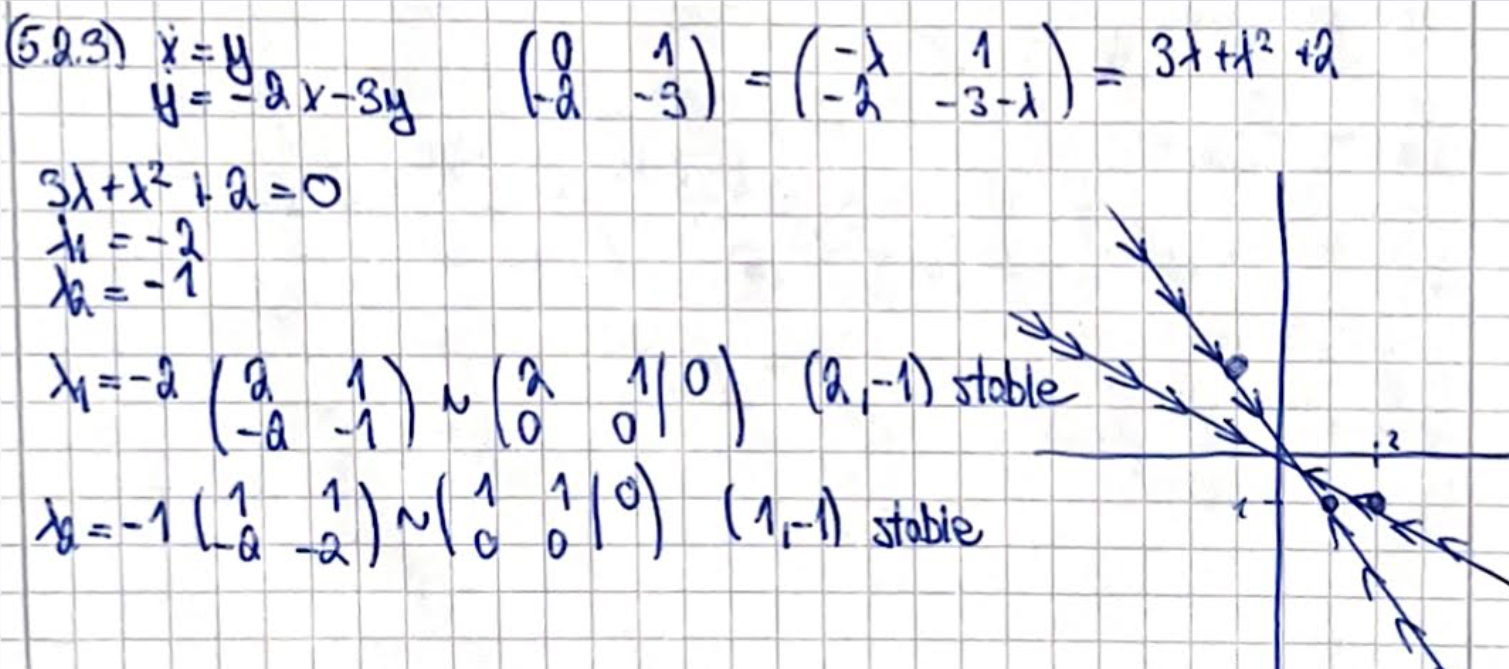 (5.2.3) ẋ = y
ẏ = -2x-3y
(0 1 -2 -3) = (-λ 1 -2 -3-λ) = 3λ+λ² +2
3λ+λ² + 2 = 0
λ1 = -2
λ2 = -1
λ1 = -2 (2 1 -2 -1) ~ (2 1|0 0 0) (2,-1) stable
λ2 = -1 (1 1 -2 -2) ~ (1 1|0 0 0) (1,-1) stable
2
1